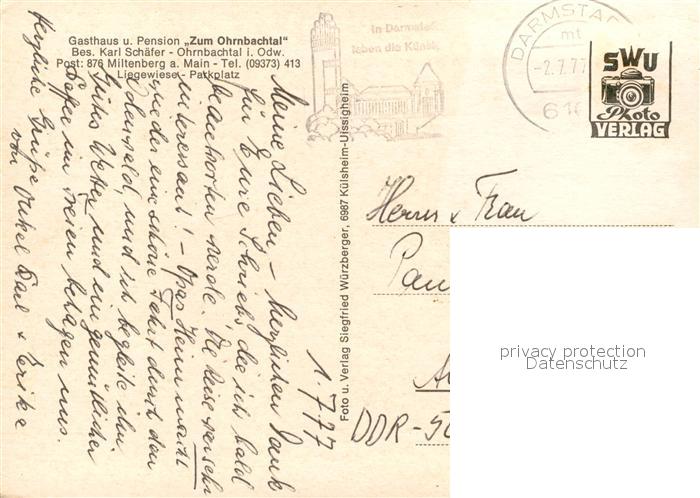 Gasthaus u. Pension „Zum Ohrnbachtal"
Bes. Karl Schäfer - Ohrnbachtal i. Odw.
Post: 876 Miltenberg a. Main - Tel. (09373) 413
Liegewiese - Parkplatz
In Darmstadt
leben die Künste
DARMSTADT
mt
-2.7.77
610
SWU
Photo
VERLAG
1.7.77
Meine Lieben - herzlichen Dank
für Eure Schriebs, die ich bald
beantworten werde. Die Reise war sehr
interessant! - Opas Heini macht
wieder eine schöne Fahrt durch den
Odenwald, und ich begleite ihn.
Gutes Wetter und ein gemütlicher
Kaffee im Freien behagen uns.
Herzliche Grüße von Onkel Karl + Erika
Foto u. Verlag Siegfried Würzberger, 6987 Külsheim-Uissigheim
Herrn + Frau
Pau
DDR-50
privacy protection
Datenschutz